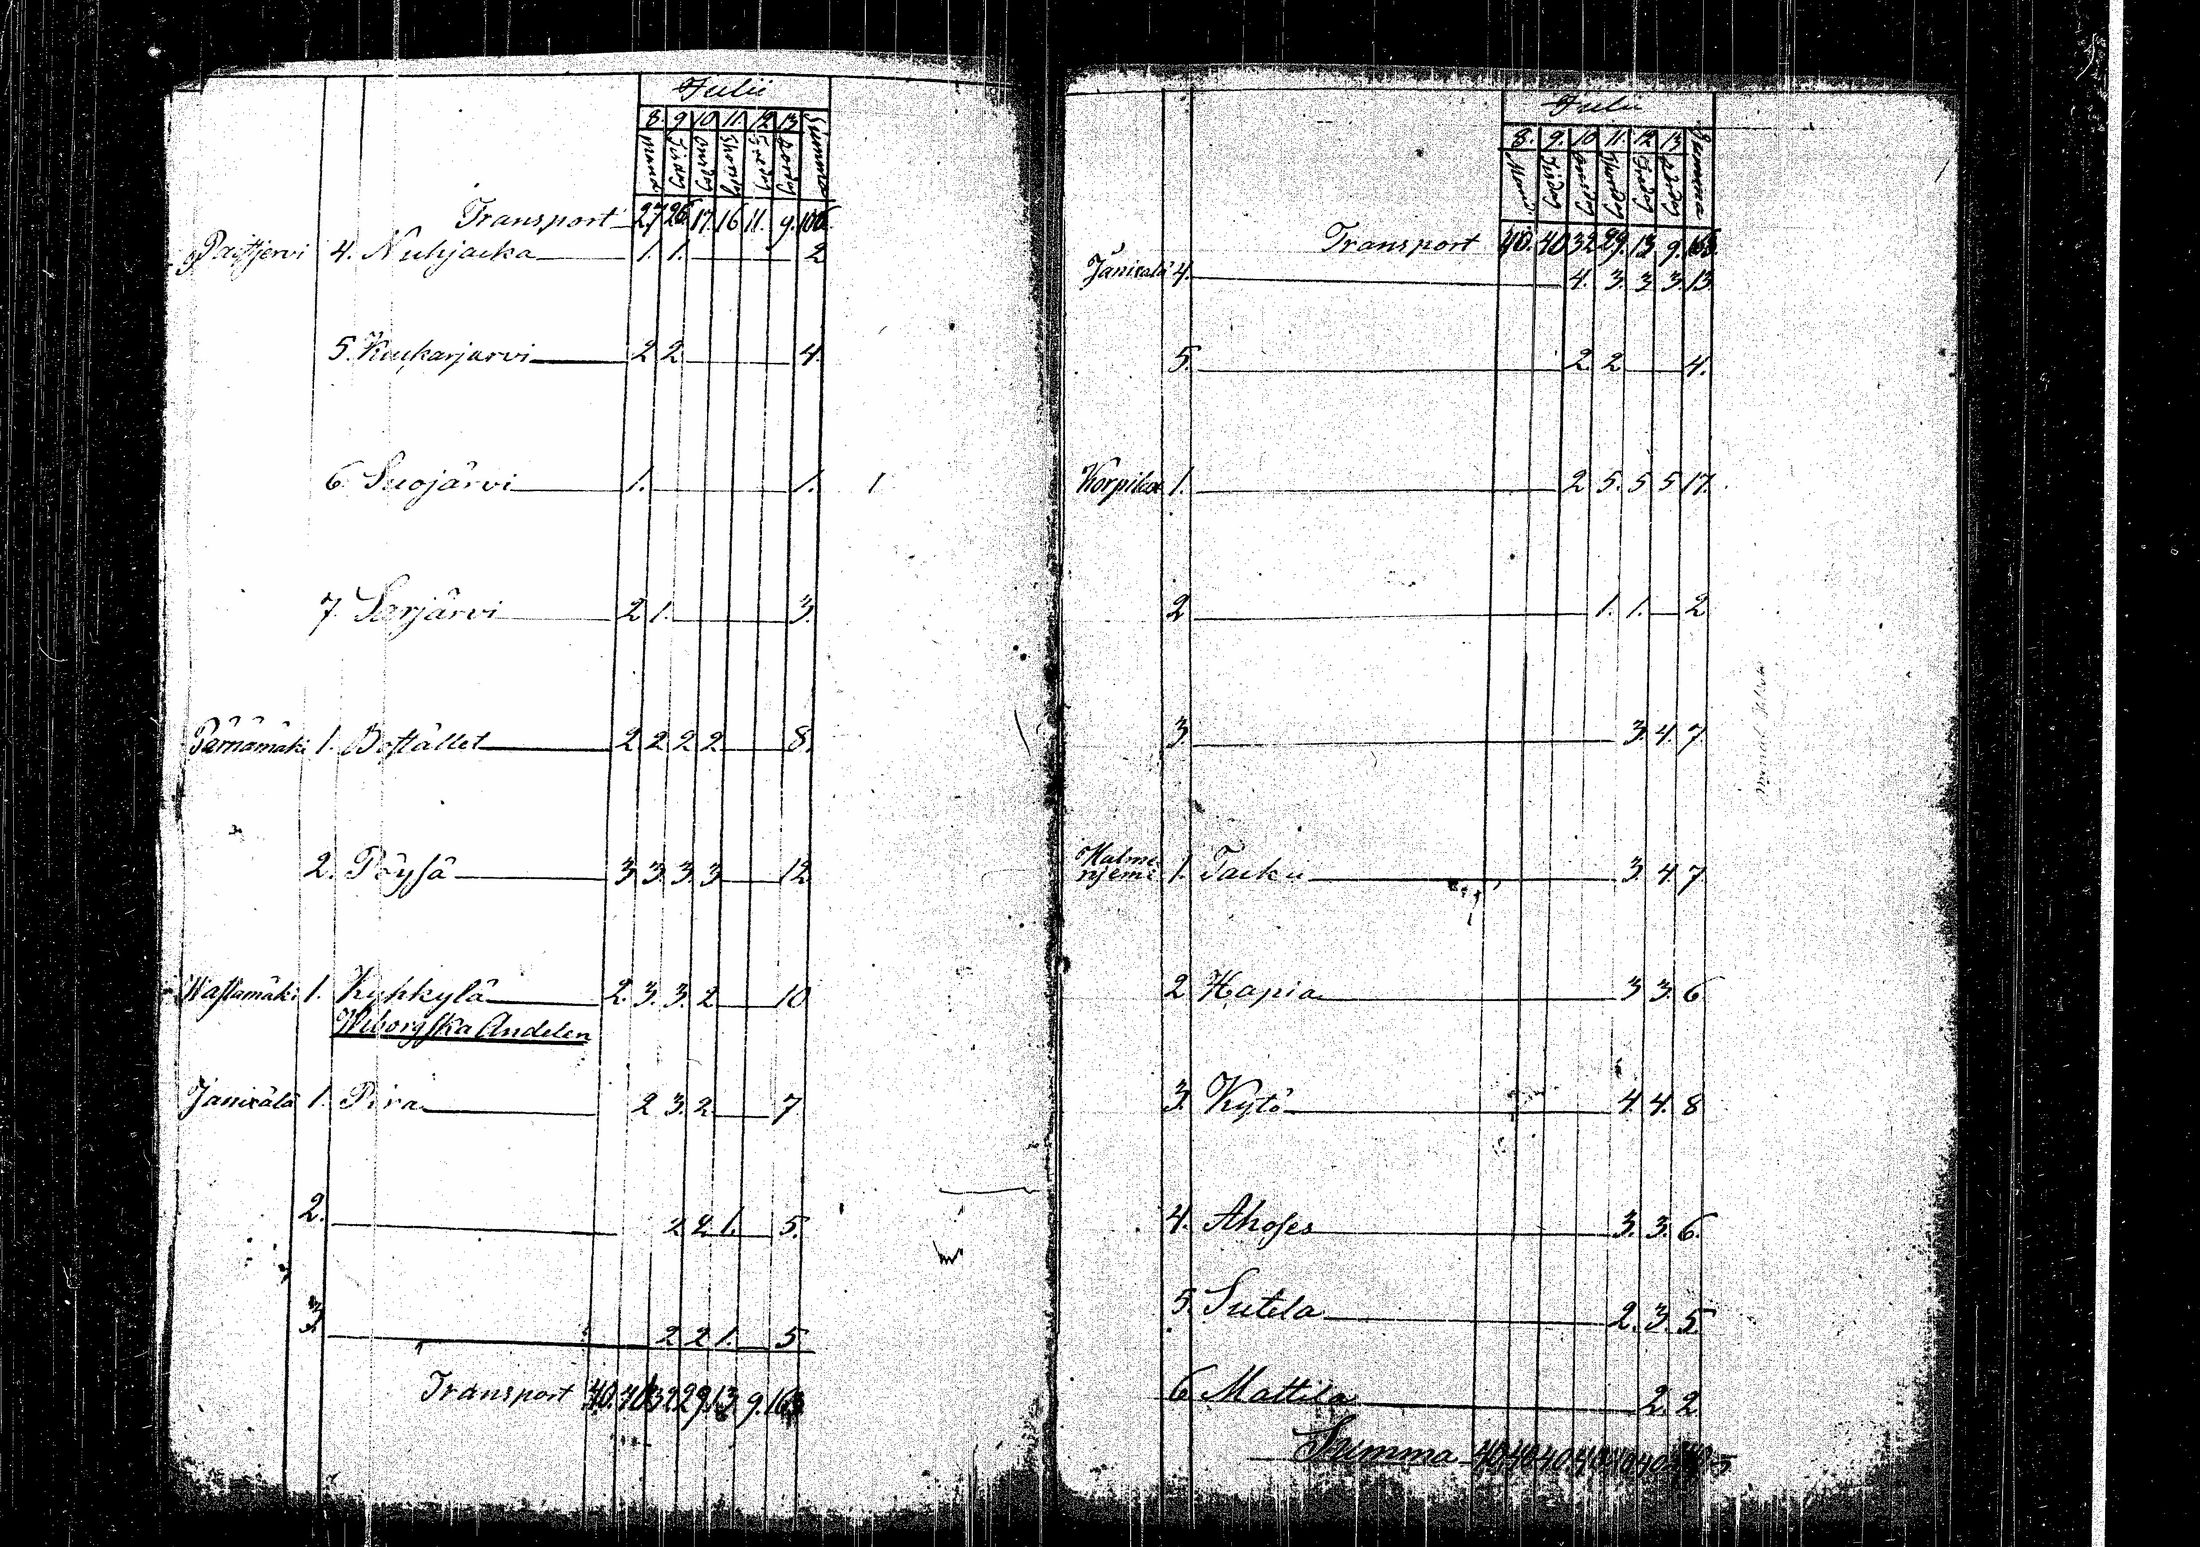 Julii
8. 9. 10. 11. 12. 13. Summa
Transport 27 26 17. 16 11. 9. 106.
4. Nuhjacka 1. 1. 2
5. Kuukarjarvi 2 2 4.
6 Suojärvi 1. 1.
7. Sarjärvi 2 1. 3.
Pärnämäki 1. Bostället 2 2 2 2 8.
2. Pöysä 3 3 3. 3 12
Wastamäki 1. Kyhkylä 2. 3. 3. 2 10
Wiborgska Andelen
Janisälä 1. Pira 2 3. 2 7
2. 2 2 1. 5.
3. 2 2 1. 5
Transport 40. 40 32 29. 13. 9. 163
Julii
8. 9. 10 11. 12 13. Summa
Transport 40. 40 32 29. 13 9. 163.
Janisalä 4. 4. 3. 3 3. 13.
5. 2. 2 4.
Korpilax 1. 2 5. 5 5 17.
2 1. 1. 2
3. 3. 4. 7.
Kalmeнjemi 1. Tacku 3. 4. 7.
2 Hapia 3 3. 6
3. Kytö 4. 4. 8
4. Ahoses 3. 3. 6.
5. Sutela 2. 3. 5.
6 Mattila 2. 2
Summa 40. 40 40. 40 40 40. 240